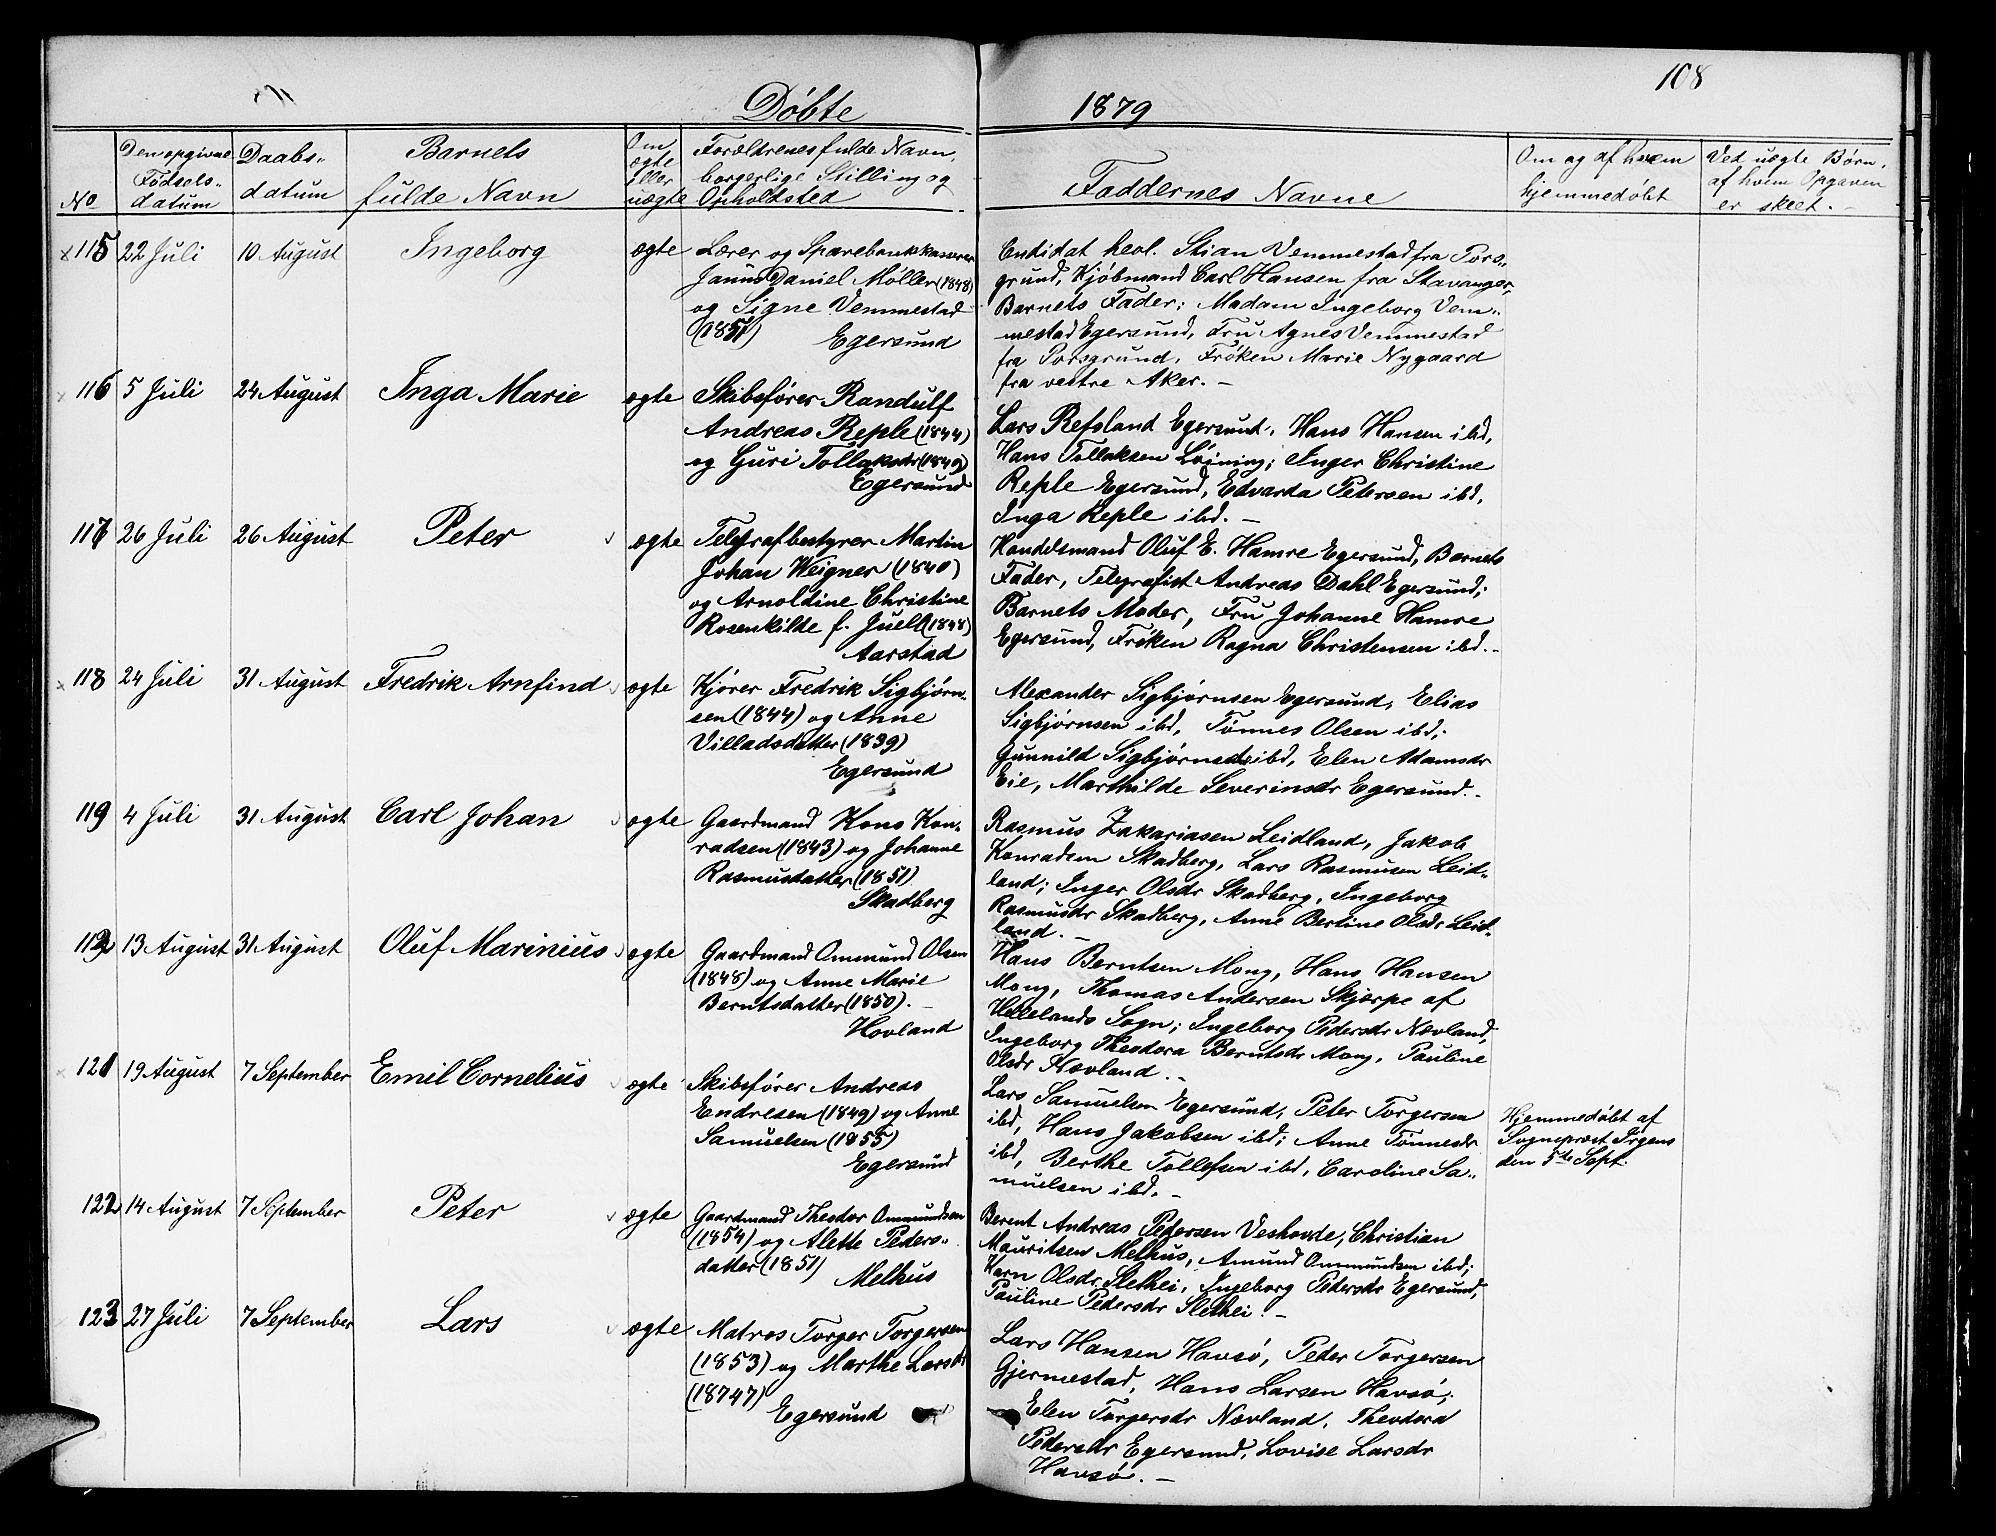 108
Døbte 1879
No
Den opgivne Fødsels- datum
Daabs- datum
Barnets fulde Navn
Om ægte eller uægte
Forældrenes fulde Navn, borgerlige Stilling og Opholdsted
Faddernes Navne
Om og af hvem hjemmedøbt
Ved uægte Børn, af hvem Opgaven er skeet. -
115 22 Juli 10 August Ingeborg ægte
Lærer og Sparebankkasserer
Janus Daniel Møller (1848)
og Signe Vemmestad
(1851) Egersund
Candidat theol. Stian Vemmestad fra Pors-
grund, Kjøbmand Carl Hansen fra Stavanger,
Barnets Fader; Madam Ingeborg Vem-
mestad Egersund, Fru Agnes Vemmestad
fra Porsgrund, Frøken Marie Nygaard
fra vestre Aker. -
116 5 Juli 24 August Inga Marie ægte
Skibsfører Randulf
Andreas Reple (1844)
og Guri Tollaksdr (1849)
Egersund
Lars Refsland Egersund, Hans Hansen ibd,
Hans Tollaksen Loining; Inger Christine
Reple Egersund, Edvarda Petersen ibd,
Inga Reple ibd. -
117 26 Juli 26 August Peter ægte
Telegrafbestyrer Martin
Johan Weigner (1840)
og Arnoldine Christine
Rosenkilde f. Juell (1848)
Aarstad
Handelsmand Oluf E. Hamre Egersund, Barnets
Fader, Telegrafist Andreas Dahl Egersund;
Barnets Moder, Fru Johanne Hamre
Egersund, Frøken Ragna Christensen ibd. -
118 24 Juli 31 August Fredrik Arnfind ægte
Kjører Fredrik Sigbjørn-
sen (1844) og Anne
Villadsdatter (1839)
Egersund
Alexander Sigbjørnsen Egersund, Elias
Sigbjørnsen ibd, Tønnes Olsen ibd;
Gunnild Sigbjørnsdr ibd, Elen Adamsdr
Eie, Marthilde Severinsdr Egersund. -
119 4 Juli 31 August Carl Johan ægte
Gaardmand Kons Kon-
radsen (1843) og Johanne
Rasmusdatter (1851)
Skadberg
Rasmus Zakariasen Leidland, Jakob
Konradsen Skadberg, Lars Rasmusen Leid-
land; Inger Olsdr Skadberg, Ingeborg
Rasmusdr Skadberg, Anne Bertine Olsdr Leid-
land. -
13 August 31 August Oluf Marinius ægte
Gaardmand Ommund Olsen
(1848) og Anne Marie
Berntsdatter (1850). -
Hovland
Hans Berntsen Mong, Hans Hansen
Mong, Thomas Andersen Skjerpe af
Hellelands Sogn; Ingeborg Pedersdr Nævland,
Ingeborg Theodora Berntsdr Mong, Pauline
Olsdr Hovland. -
121 19 August 7 September Emil Cornelius ægte
Skibsfører Andreas
Endresen (1849) og Anne
Samuelsen (1855)
Egersund
Lars Samuelsen Egersund, Peter Torgersen
ibd, Hans Jakobsen ibd; Anne Tønnesdr
ibd, Berthe Tollefsen ibd, Caroline Sa-
muelsen ibd. -
Hjemmedøbt af
Sogneprest Irgens
den 5te Sept.
122 14 August 7 September Peter ægte
Gaardmand Theodor Ommundsen
(1854) og Alette Peders-
datter (1851) Melhus
Berent Andreas Pedersen Veshovde, Christian
Mauritsen Melhus, Amund Ommundsen ibd;
Karn Olsdr Slethei, Ingeborg Pedersdr Egersund,
Pauline Pedersdr Slethei. -
123 27 Juli 7 September Lars ægte
Matros Torger Torgersen
(1853) og Marthe Larsdr
(18747)
Egersund
Lars Hansen Havsø, Peder Torgersen
Gjermestad, Hans Larsen Havsø;
Elen Torgersdr Nævland, Theodora
Pedersdr Egersund, Lovise Larsdr
Havsø. -